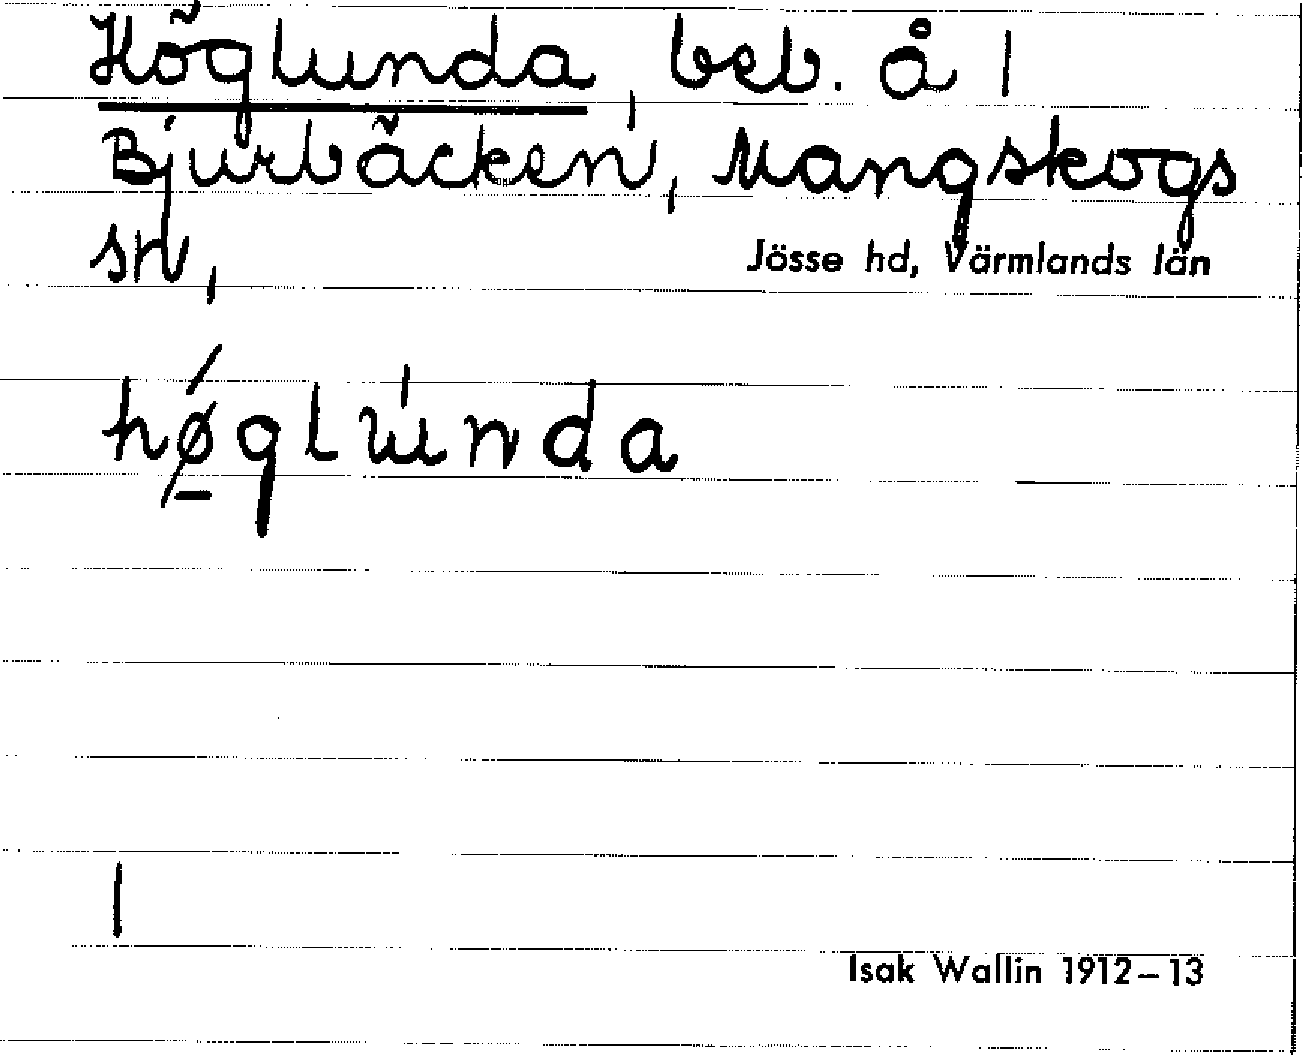 Höglunda, beb. å 1
Bjurbäcken, Mangskogs
sn,
Jösse hd, Värmlands län
hǿ̲glu̇́nda
1
Isak Wallin 1912–13